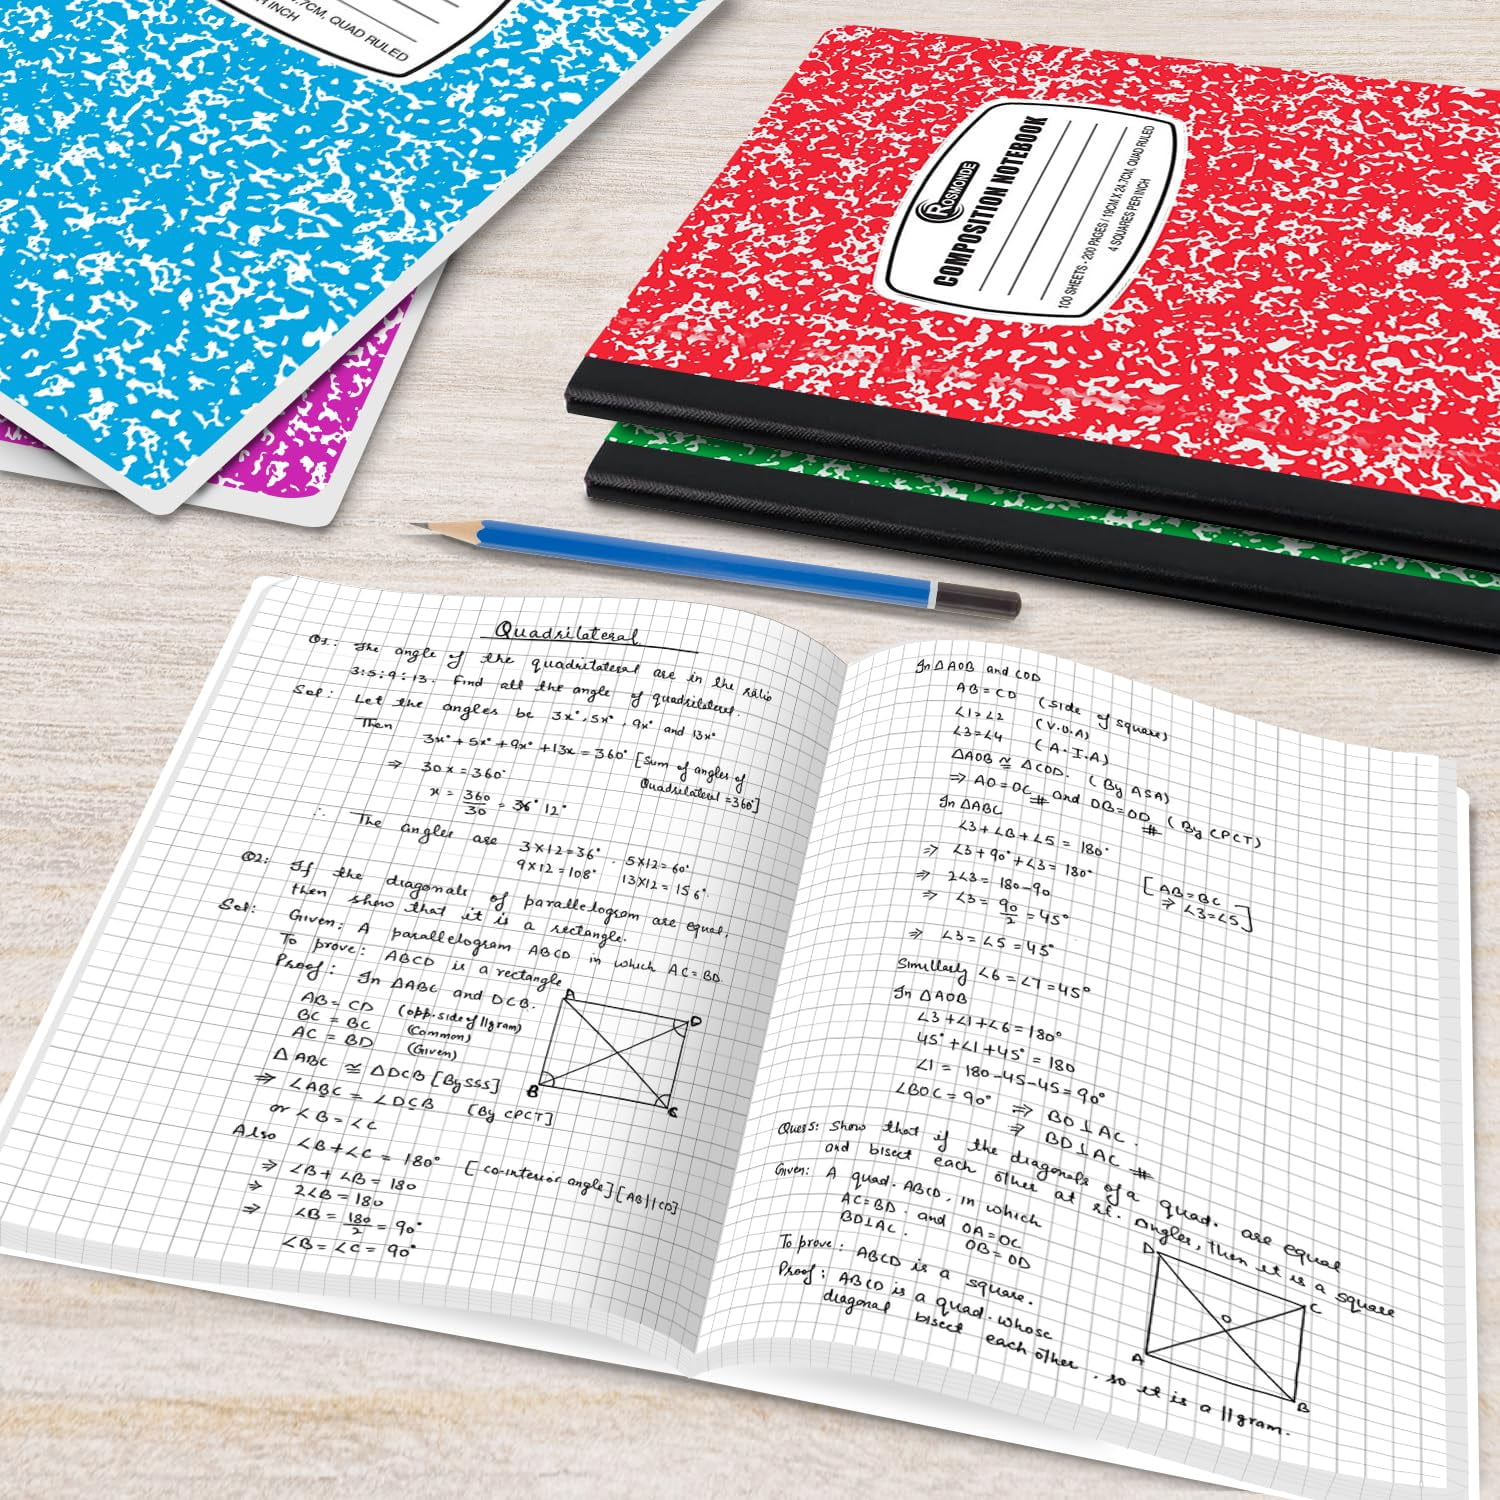 .7CM, QUAD RULED
R INCH
ROSMONDE
COMPOSITION NOTEBOOK
100 SHEETS - 200 PAGES / 19CM X 24.7CM, QUAD RULED
4 SQUARES PER INCH
Quadrilateral
Q1: The angle of the quadrilateral are in the ratio
3:5:9:13. Find all the angle of quadrilateral.
Sol: Let the angles be 3x°, 5x°, 9x° and 13x°
Then
3x° + 5x° + 9x° + 13x = 360° [Sum of angles of
Quadrilateral = 360°]
⇒ 30x = 360°
x = 360/30 = 12°
∴ The angles are 3×12=36°, 5×12=60°
9×12=108° 13×12=156°.
Q2: If the diagonals of parallelogram are equal,
then show that it is a rectangle.
Sol: Given: A parallelogram ABCD in which AC=BD.
To prove: ABCD is a rectangle
Proof: In ΔABC and DCB.
AB = CD (opp. side of ||gram)
BC = BC (Common)
AC = BD (Given)
Δ ABC ≅ ΔDCB [By SSS]
⇒ ∠ABC = ∠DCB (By CPCT]
or ∠B = ∠C
Also ∠B+∠C = 180° [co-interior angle] [AB||CD]
⇒ ∠B + ∠B = 180
⇒ 2∠B = 180
⇒ ∠B = 180/2 = 90°
∠B = ∠C = 90°
A
D
B
C
In Δ AOB and COD
AB = CD (side of square)
∠1=∠2 (V.O.A)
∠3=∠4 (A.I.A)
ΔAOB ≅ ΔCOD. (By ASA)
⇒ AO=OC # and OB=OD # (By CPCT)
In ΔABC
∠3+∠B+∠5 = 180°
⇒ ∠3+90°+∠3 = 180° [AB=BC
⇒ ∠3=∠5]
⇒ 2∠3 = 180-90
⇒ ∠3 = 90/2 = 45°
⇒ ∠3=∠5=45°
Simillarly ∠6=∠7=45°
In ΔAOB
∠3+∠1+∠6=180°
45°+∠1+45° = 180
∠1 = 180-45-45=90°
∠BOC = 90° ⇒ BO ⊥ AC.
⇒ BD ⊥ AC #
Ques5: Show that if the diagonals of a quad. are equal
and bisect each other at rt. angles, then it is a square
Given: A quad. ABCD, in which
AC=BD. and OA=OC
BD⊥AC. OB=OD
To prove: ABCD is a square.
Proof: ABCD is a quad. whose
diagonal bisect each other, so it is a ||gram.
D
C
O
A
B